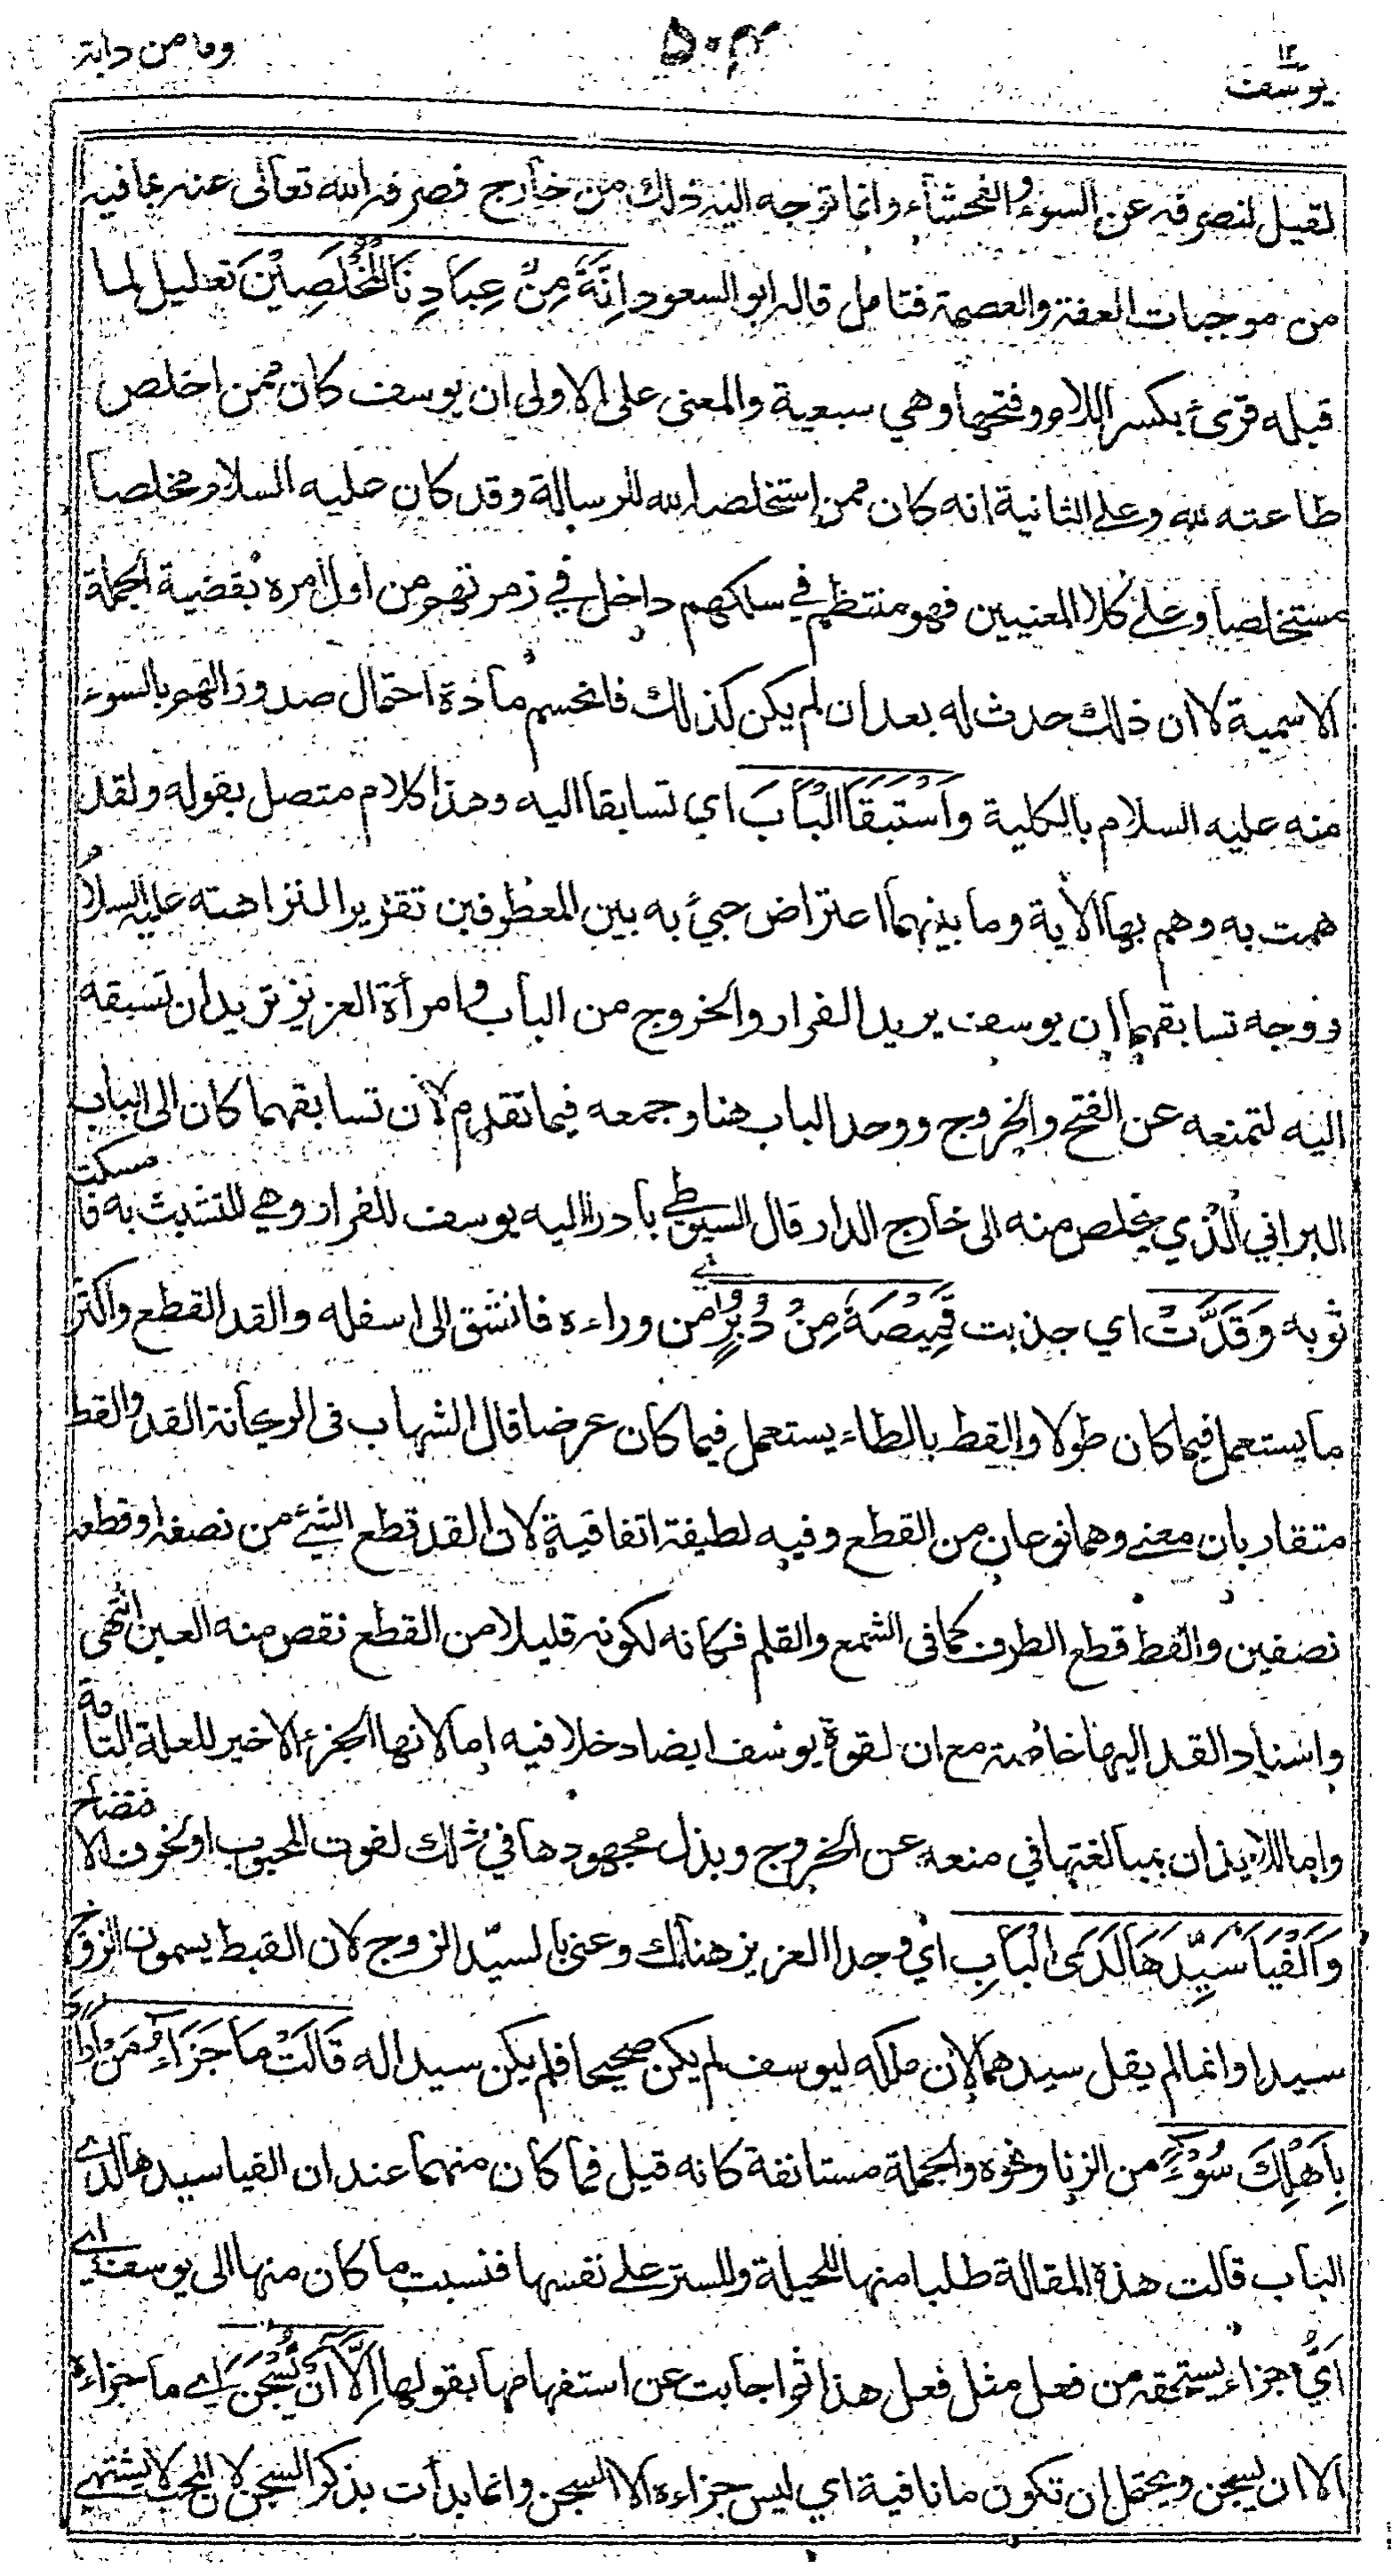 يوسف ١٢
٥٠٣
وما من دابة
لقيل لنصرفه عن السوء والفحشاء وانما توجه اليه ذلك من خارج فصرفه الله تعالى عنه بما فيه
من موجبات العفة والعصمة فتامل قاله ابو السعود إِنَّهُ مِنْ عِبَادِنَا الْمُخْلَصِيْنَ تعليل لما
قبله قرئ بكسر اللام وفتحها وهي سبعية والمعنى على الاولى ان يوسف كان ممن اخلص
طاعته لله وعلى الثانية انه كان ممن استخلصه الله للرسالة وقد كان عليه السلام مخلصا
مستخلصا وعلى كلا المعنيين فهو منتظم في سلكهم داخل في زمرتهم من اول امره بقضية الجملة
الاسمية لا ان ذلك حدث له بعد ان لم يكن كذلك فانحسم مادة احتمال صدور الهم بالسوء
منه عليه السلام بالكلية وَاسْتَبَقَا الْبَابَ اي تسابقا اليه وهذا كلام متصل بقوله ولقد
همت به وهم بها الآية وما بينهما اعتراض جيئ به بين المعطوفين تقريرا لنزاهته عليه السلام
ووجه تسابقهما ان يوسف يريد الفرار والخروج من الباب وامرأة العزيز تريد ان تسبقه
اليه لتمنعه عن الفتح والخروج ووحد الباب هنا وجمعه فيما تقدم لان تسابقهما كان الى الباب
البراني الذي يخلص منه الى خارج الدار قال السيوطي بادر اليه يوسف للفرار وهي للتشبث به فامسكت
ثوبه وَقَدَّتْ اي جذبت قَمِيْصَهُ مِنْ دُبُرٍ اي من وراءه فانشق الى اسفله والقد القطع واكثر
ما يستعمل فيما كان طولا والقط بالطاء يستعمل فيما كان عرضا قال الشهاب في الريحانة القد والقط
متقاربان معنى وهما نوعان من القطع وفيه لطيفة اتفاقية لان القد قطع الشيء من نصفه او قطعه
نصفين والقط قطع الطرف كما في الشمع والقلم فكانه لكونه قليلا من القطع نقص منه العين انتهى
واسناد القد اليها خاصة مع ان لقوة يوسف ايضا دخلا فيه اما لانها الجزء الاخير للعلة التامة
واما للايذان بمبالغتها في منعه عن الخروج وبذل مجهودها في ذلك لفوت المحبوب او لخوف الافتضاح
وَأَلْفَيَا سَيِّدَهَا لَدَى الْبَابِ اي وجدا العزيز هنالك وعني بالسيد الزوج لان القبط يسمون الزوج
سيدا وانما لم يقل سيدهما لان ملكه ليوسف لم يكن صحيحا فلم يكن سيدا له قَالَتْ مَا جَزَاءُ مَنْ أَرَادَ
بِأَهْلِكَ سُوْءًا من الزنا ونحوه والجملة مستانفة كانه قيل فما كان منهما عند ان الفيا سيدها لدى
الباب قالت هذه المقالة طلبا منها للحيلة وللستر على نفسها فنسبت ما كان منها الى يوسف اي
أيُّ جزاء يستحقه من فعل مثل فعل هذا ثم اجابت عن استفهامها بقولها إِلَّا أَنْ يُسْجَنَ اي ما جزاءه
الا ان يسجن ويحتمل ان تكون ما نافية اي ليس جزاءه الا السجن وانما بدأت بذكر السجن لان المحب لا يشتهي